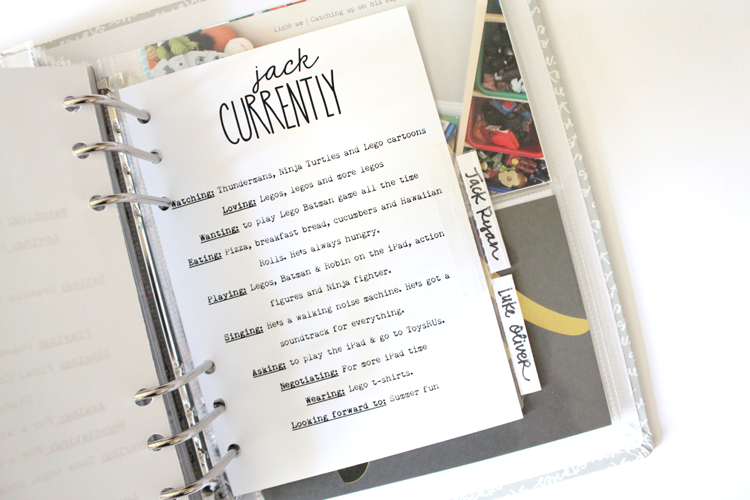 11:08 am | Catching up on his
jack
CURRENTLY
Watching: Thundermans, Ninja Turtles and Lego cartoons
Loving: Legos, legos and more legos
Wanting: to play Lego Batman game all the time
Eating: Pizza, breakfast bread, cucumbers and Hawaiian
Rolls. He's always hungry.
Playing: Legos, Batman & Robin on the iPad, action
figures and Ninja fighter.
Singing: He's a walking noise machine. He's got a
soundtrack for everything.
Asking: to play the iPad & go to ToysRUs.
Negotiating: For more iPad time
Wearing: Lego t-shirts.
Looking forward to: Summer fun
Jack Ryan
Luke Oliver